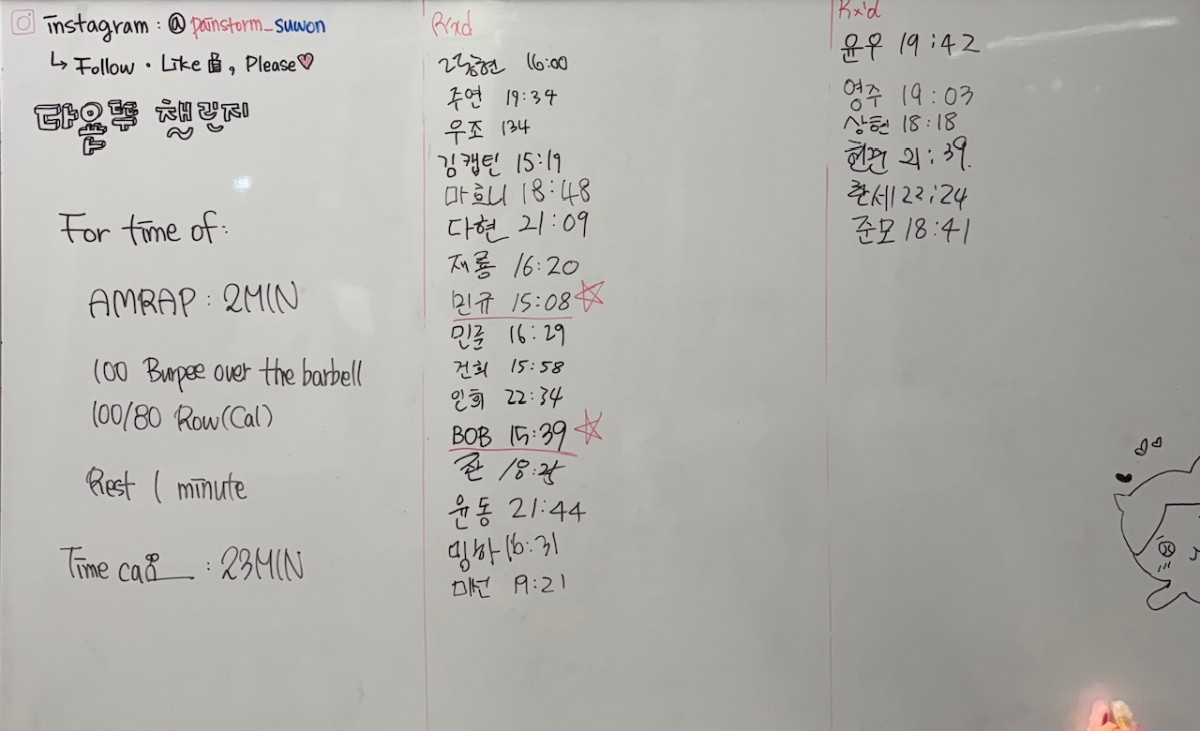 instagram : @ painstorm_suwon
↳ Follow · Like 👍, Please♡
다음뚝 챌린지
For time of:
AMRAP : 2MIN
100 Burpee over the barbell
100/80 Row(Cal)
Rest 1 minute
Time cap : 23MIN
Rxd
16:00
주연 19:34
우조 134
김캡틴 15:19
마호니 18:48
다현 21:09
재룡 16:20
민규 15:08 ☆
민준 16:29
건희 15:58
인희 22:34
BOB 15:39 ☆
윤동 21:44
밍하 16:31
미선 19:21
Rx'd
윤우 19:42
영주 19:03
상현 18:18
21:39.
22:24
준모 18:41